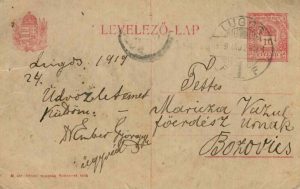 LEVELEZŐ-LAP
LUGOS
Lugos, 1919
24.
Üdvözletemet
küldöm.
Dr Ember György
Tettes
Maricza Vazul
főerdész Urnak
Bozovics